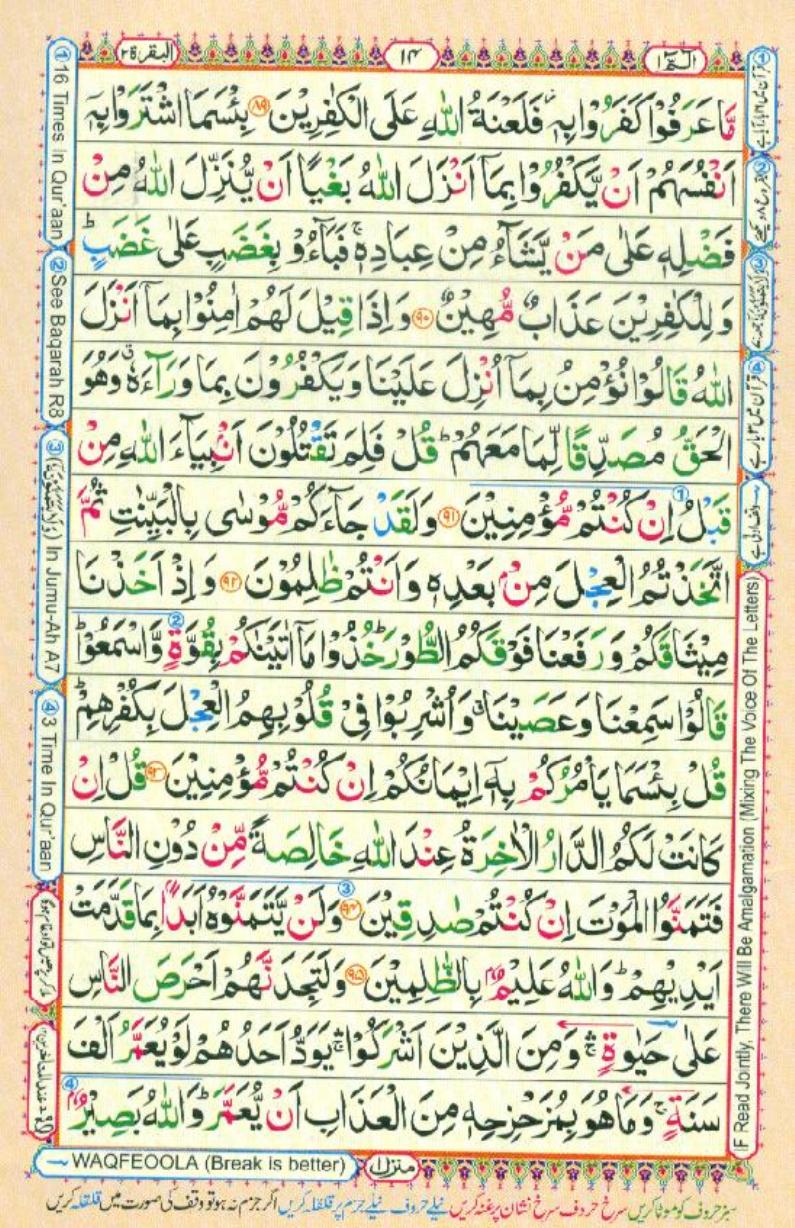 الٓمّٓ ١
١٤
البقرة ٢
مَّا عَرَفُوْا كَفَرُوْا بِهٖ ۫ فَلَعْنَةُ اللّٰهِ عَلَى الْكٰفِرِيْنَ ۝۸۹ بِئْسَمَا اشْتَرَوْا بِهٖۤ
اَنْفُسَهُمْ اَنْ يَّكْفُرُوْا بِمَاۤ اَنْزَلَ اللّٰهُ بَغْيًا اَنْ يُّنَزِّلَ اللّٰهُ مِنْ
فَضْلِهٖ عَلٰى مَنْ يَّشَآءُ مِنْ عِبَادِهٖ ۚ فَبَآءُوْ بِغَضَبٍ عَلٰى غَضَبٍ ؕ
وَ لِلْكٰفِرِيْنَ عَذَابٌ مُّهِيْنٌ ۝۹۰ وَ اِذَا قِيْلَ لَهُمْ اٰمِنُوْا بِمَاۤ اَنْزَلَ
اللّٰهُ قَالُوْا نُؤْمِنُ بِمَاۤ اُنْزِلَ عَلَيْنَا وَ يَكْفُرُوْنَ بِمَا وَرَآءَهٗ ۗ وَ هُوَ
الْحَقُّ مُصَدِّقًا لِّمَا مَعَهُمْ ؕ قُلْ فَلِمَ تَقْتُلُوْنَ اَنْۢبِيَآءَ اللّٰهِ مِنْ
قَبْلُ اِنْ كُنْتُمْ مُّؤْمِنِيْنَ ۝۹۱ وَ لَقَدْ جَآءَكُمْ مُّوْسٰى بِالْبَيِّنٰتِ ثُمَّ
اتَّخَذْتُمُ الْعِجْلَ مِنْۢ بَعْدِهٖ وَ اَنْتُمْ ظٰلِمُوْنَ ۝۹۲ وَ اِذْ اَخَذْنَا
مِيْثَاقَكُمْ وَ رَفَعْنَا فَوْقَكُمُ الطُّوْرَ ؕ خُذُوْا مَاۤ اٰتَيْنٰكُمْ بِقُوَّةٍ وَّ اسْمَعُوْا ؕ
قَالُوْا سَمِعْنَا وَ عَصَيْنَا ۗ وَ اُشْرِبُوْا فِيْ قُلُوْبِهِمُ الْعِجْلَ بِكُفْرِهِمْ ؕ
قُلْ بِئْسَمَا يَاْمُرُكُمْ بِهٖۤ اِيْمَانُكُمْ اِنْ كُنْتُمْ مُّؤْمِنِيْنَ ۝۹۳ قُلْ اِنْ
كَانَتْ لَكُمُ الدَّارُ الْاٰخِرَةُ عِنْدَ اللّٰهِ خَالِصَةً مِّنْ دُوْنِ النَّاسِ
فَتَمَنَّوُا الْمَوْتَ اِنْ كُنْتُمْ صٰدِقِيْنَ ۝۹۴ وَ لَنْ يَّتَمَنَّوْهُ اَبَدًۢا بِمَا قَدَّمَتْ
اَيْدِيْهِمْ ؕ وَ اللّٰهُ عَلِيْمٌۢ بِالظّٰلِمِيْنَ ۝۹۵ وَ لَتَجِدَنَّهُمْ اَحْرَصَ النَّاسِ
عَلٰى حَيٰوةٍ ۛۚ وَ مِنَ الَّذِيْنَ اَشْرَكُوْا ۛۚ يَوَدُّ اَحَدُهُمْ لَوْ يُعَمَّرُ اَلْفَ
سَنَةٍ ۚ وَ مَا هُوَ بِمُزَحْزِحِهٖ مِنَ الْعَذَابِ اَنْ يُّعَمَّرَ ؕ وَ اللّٰهُ بَصِيْرٌۢ
منزل ١
WAQFEOOLA (Break is better)
سبز حروف کو موٹا کریں سرخ حروف سرخ نشان پر غنہ کریں نیلے حروف نیلے جزم پر قلقلہ کریں اگر جزم نہ ہو تو وقف کی صورت میں قلقلہ کریں
① 16 Times In Qur'aan
② See Baqarah R8
③ (وَلَا يَتَمَنَّوْنَهٗ) In Jumu-Ah A7
④ 3 Time In Qur'aan
IF Read Jointly, There Will Be Amalgamation (Mixing The Voice Of The Letters)